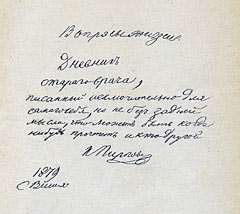 Вопросы жизни.
Дневник
стараго врача,
писанный исключительно для
самого себя, но не без задней
мысли, что может быть когда
нибудь прочтет и кто другой
Н. Пирогов
1879
с. Вишня